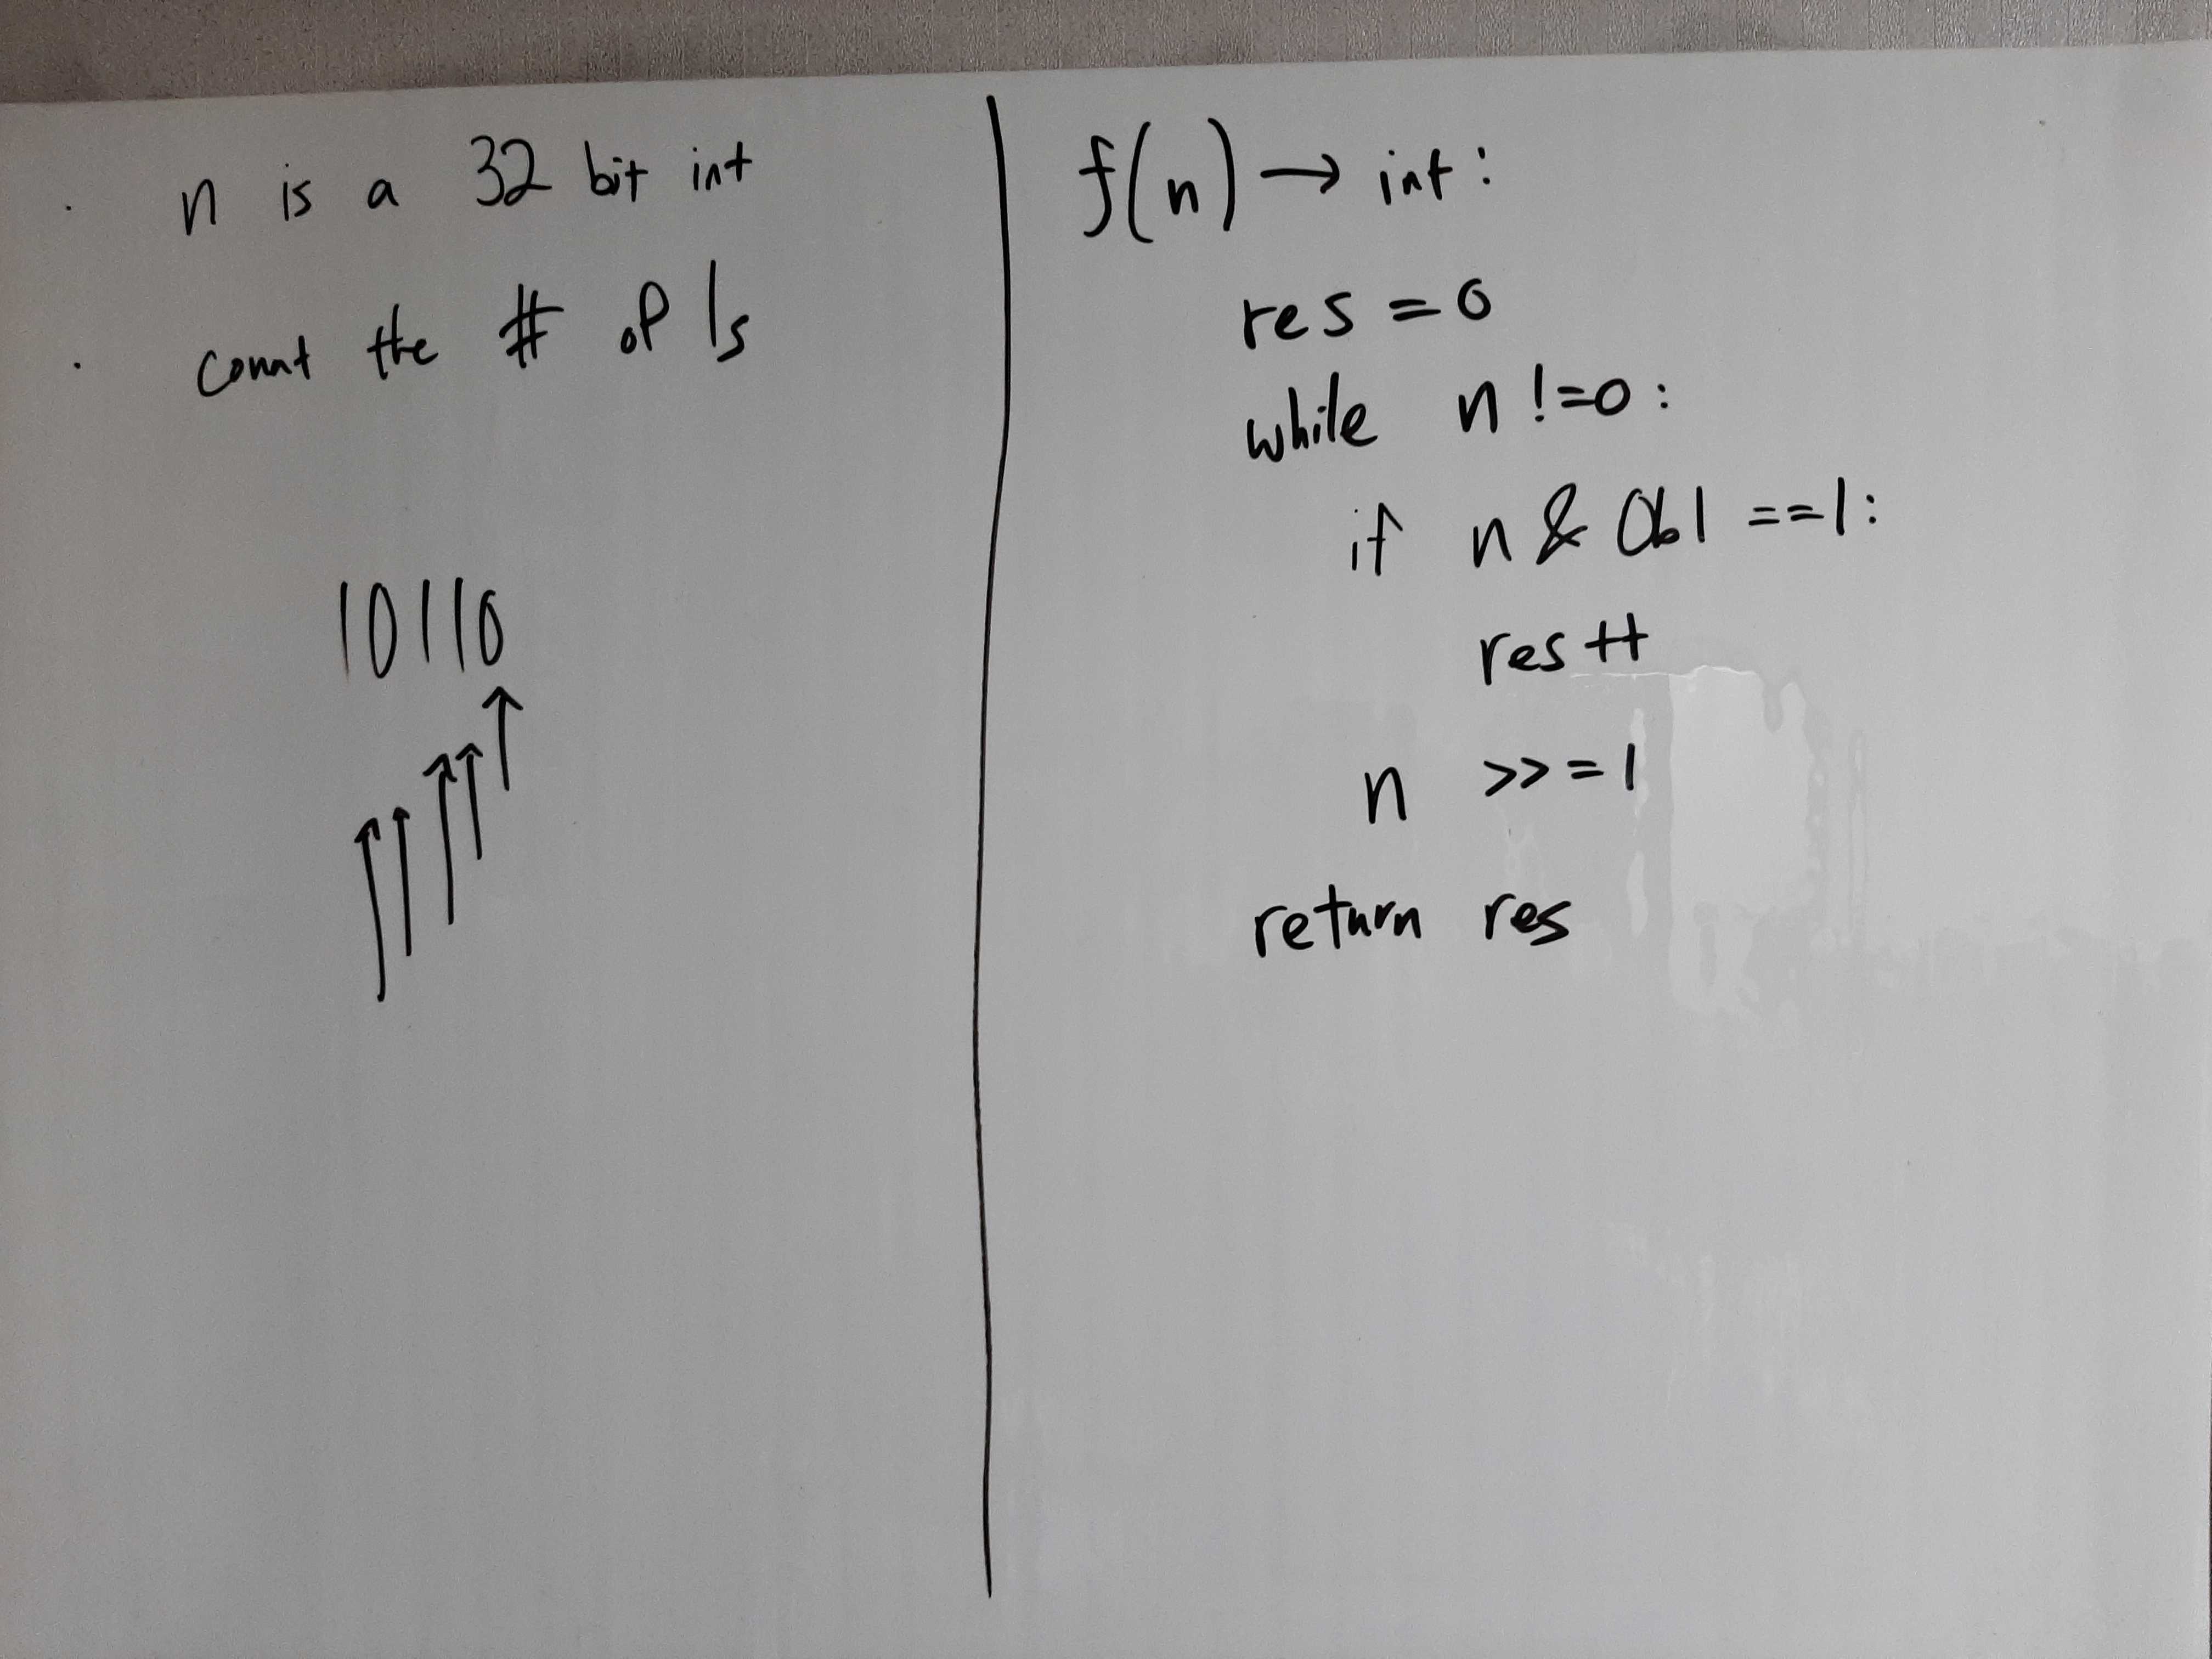 · n is a 32 bit int
· count the # of 1s
10110
f(n) → int:
res = 0
while n != 0:
if n & 0b1 == 1:
res++
n >>= 1
return res